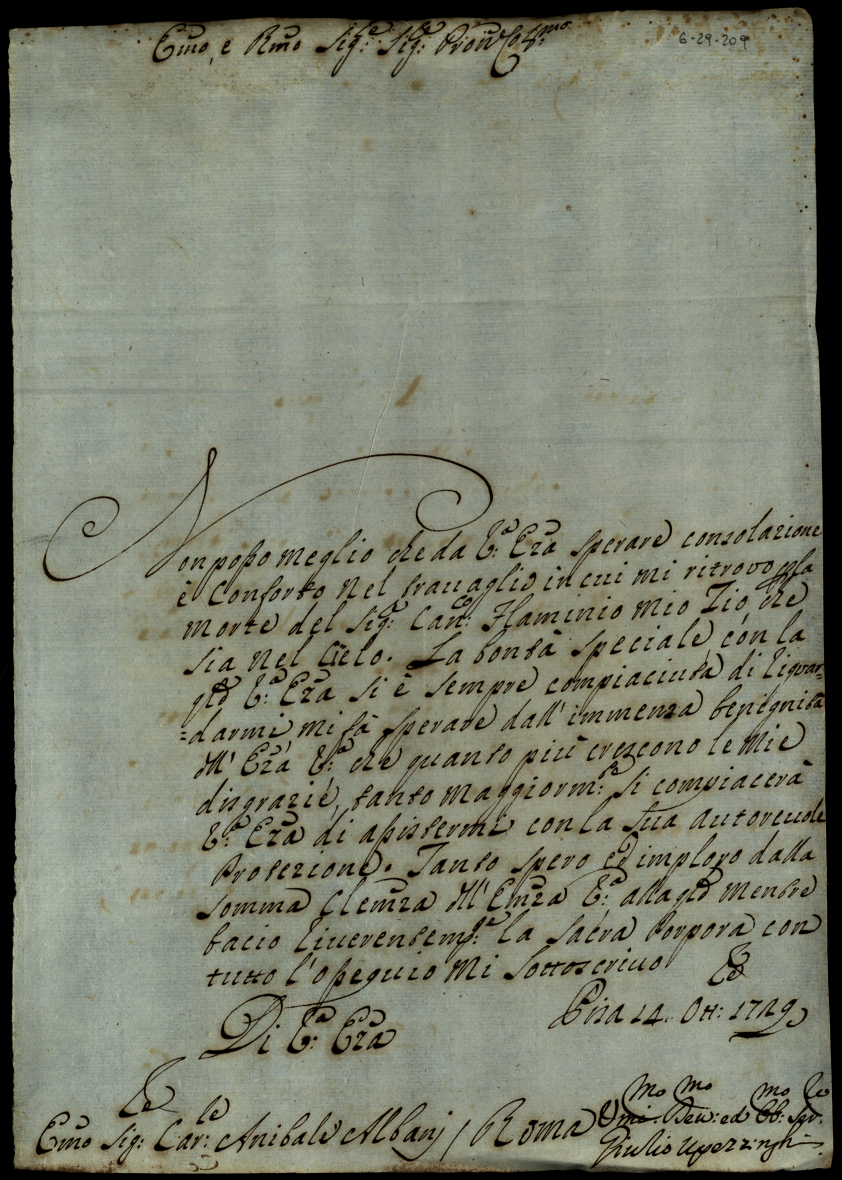 Emo, e Rmo Sigre Sigre Pron Colmo
6-29-209
Non posso meglio che da V.a Eza sperare consolazione
è Conforto nel travaglio in cui mi ritrovo p la
morte del Sigr Can.co Flaminio mio Zio, che
sia nel Cielo. La bontà speciale, con la
qle V.a Eza si è sempre compiaciuta di riguar=
=darmi mi fà sperare dall'immenza benignità
dll'Eza V.a che quanto più crescono le mie
disgrazie, tanto maggiorm.te si compiacerà
V.a Eza di assistermi con la sua autoreuole
Protezione. Tanto spero ed imploro dalla
somma Clemza dll'Emza V.a alla qle mentre
bacio riuerentem.te la sacra Porpora con
tutto l'ossequio mi sottoscriuo
Pisa 14. Ott: 1729
Di V.a Eza
Emo Sig:re Car:le Anibale Albanj / Roma
Umi.mo Deu:mo ed Obb:mo Ser:re
Giulio Upezzinghi